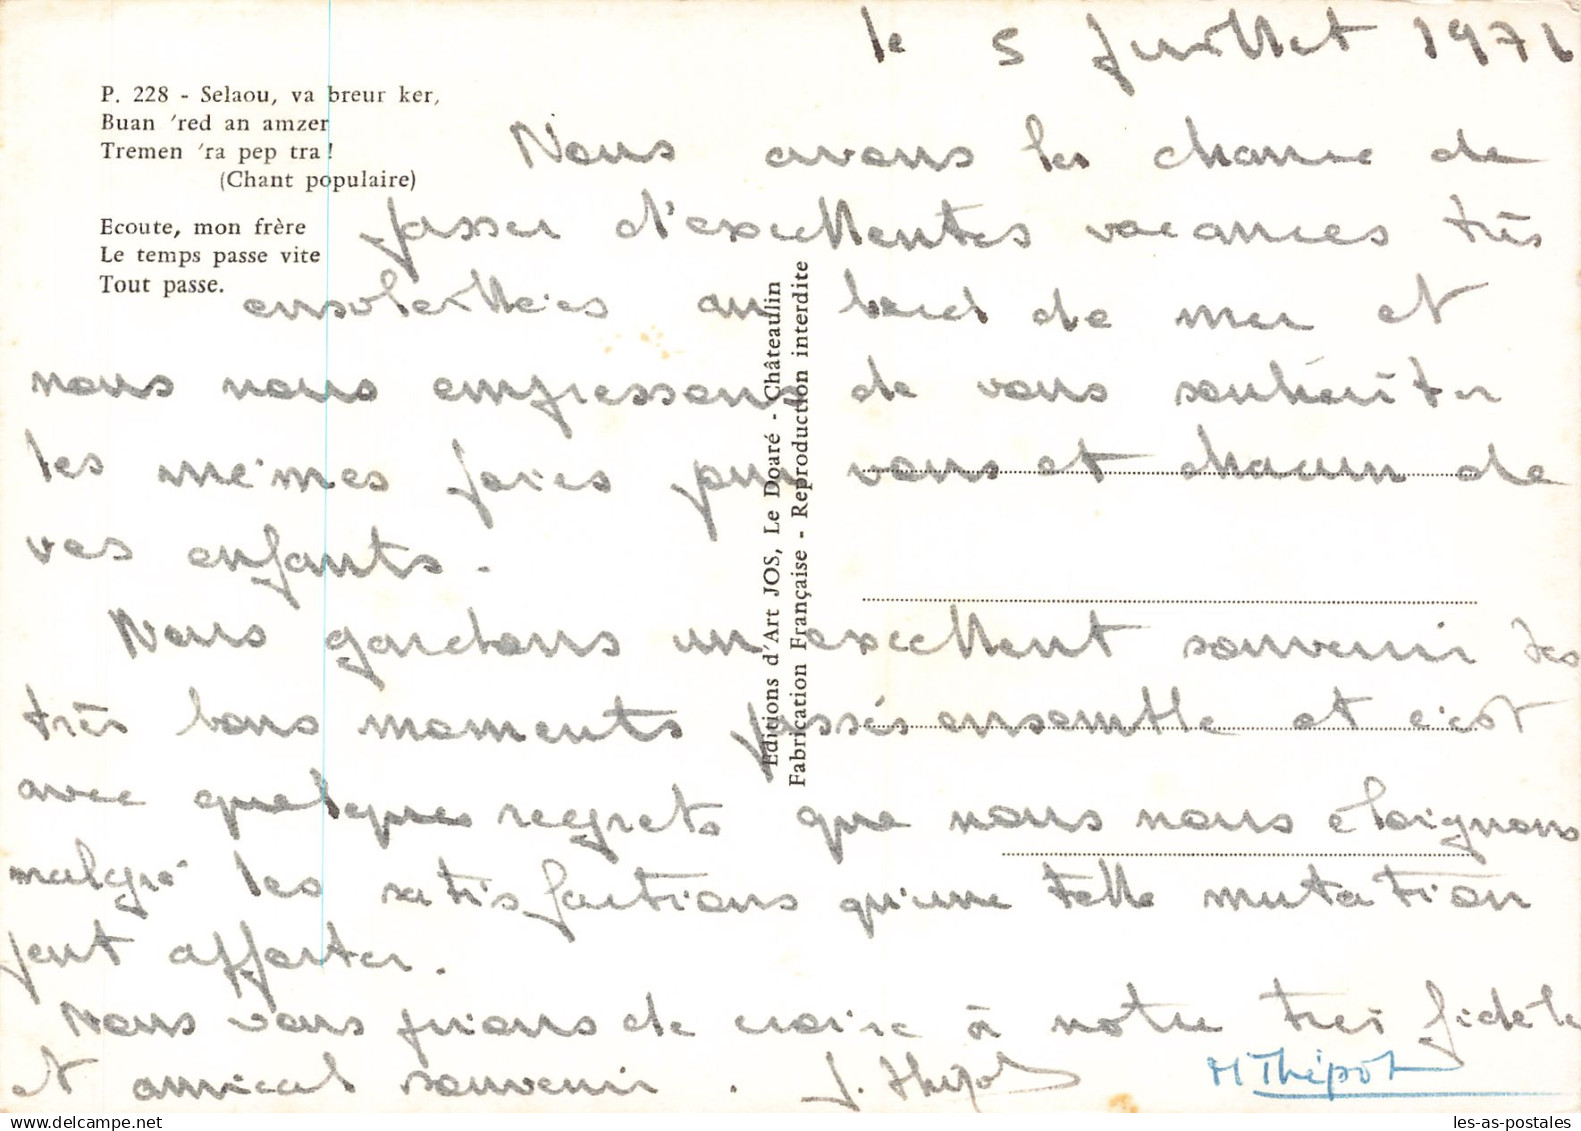 le 5 Juillet 1971
P. 228 - Selaou, va breur ker,
Buan 'red an amzer
Tremen 'ra pep tra !
(Chant populaire)
Ecoute, mon frère
Le temps passe vite
Tout passe.
Nous avons la chance de
passer d'excellentes vacances très
ensoleillées au bord de mer et
nous nous empressons de vous souhaiter
les mêmes joies pour vous et chacun de
vos enfants.
Nous gardons un excellent souvenir des
très bons moments passés ensemble et c'est
avec quelques regrets que nous nous éloignons
malgré les satisfactions qu'une telle mutation
peut apporter.
Nous vous prions de croire à notre très fidèle
et amical souvenir. J. Thépot
M Thépot
Editions d'Art JOS, Le Doaré - Châteaulin
Fabrication Française - Reproduction interdite
les-as-postales